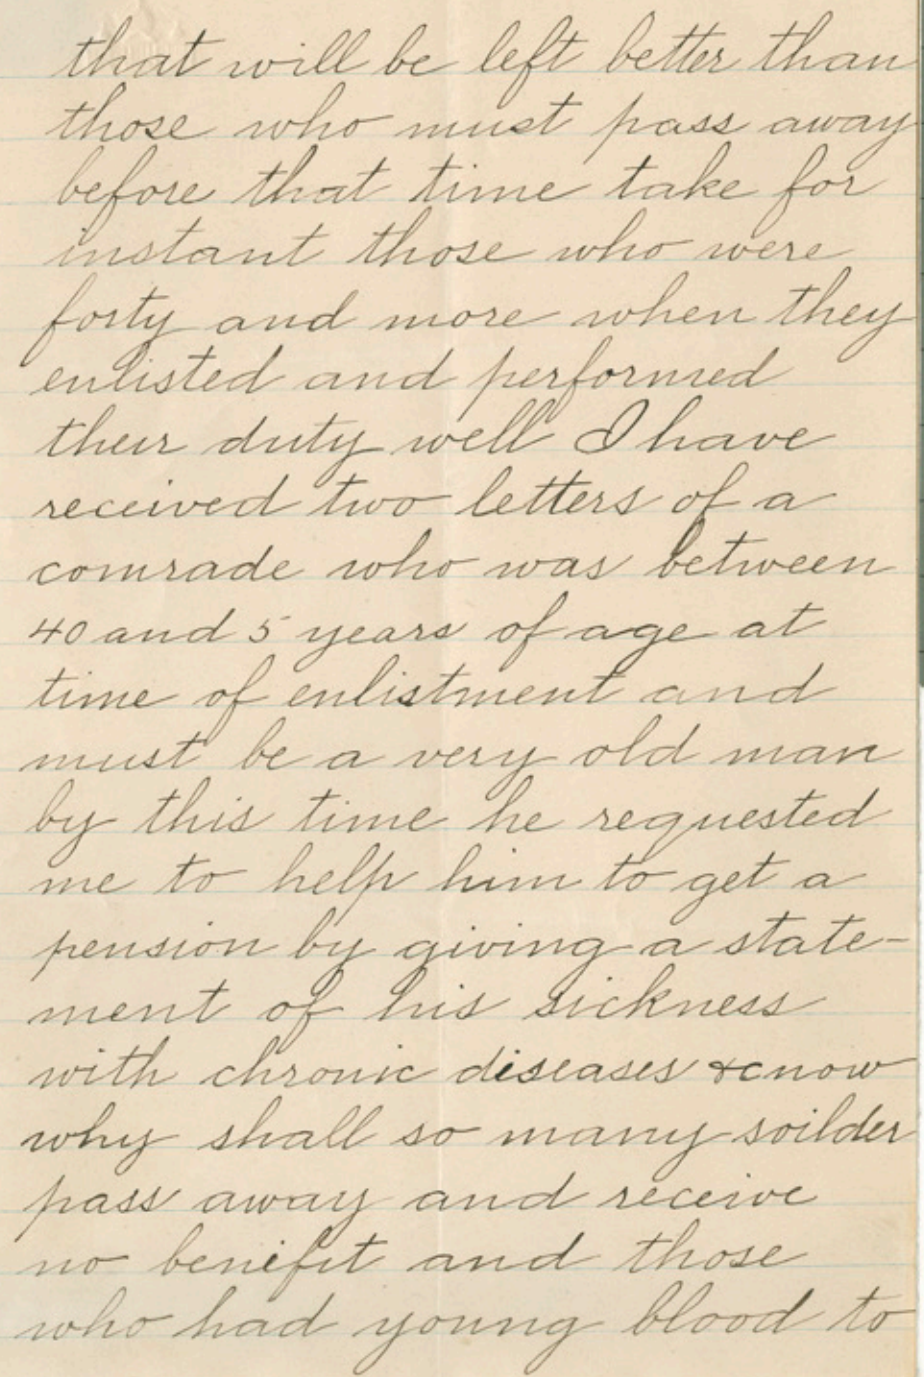 that will be left better than
those who must pass away
before that time take for
instant those who were
forty and more when they
enlisted and performed
their duty well I have
received two letters of a
comrade who was between
40 and 5 years of age at
time of enlistment and
must be a very old man
by this time he requested
me to help him to get a
pension by giving a state-
ment of his sickness
with chronic diseases &c now
why shall so many soilder
pass away and receive
no benifit and those
who had young blood to